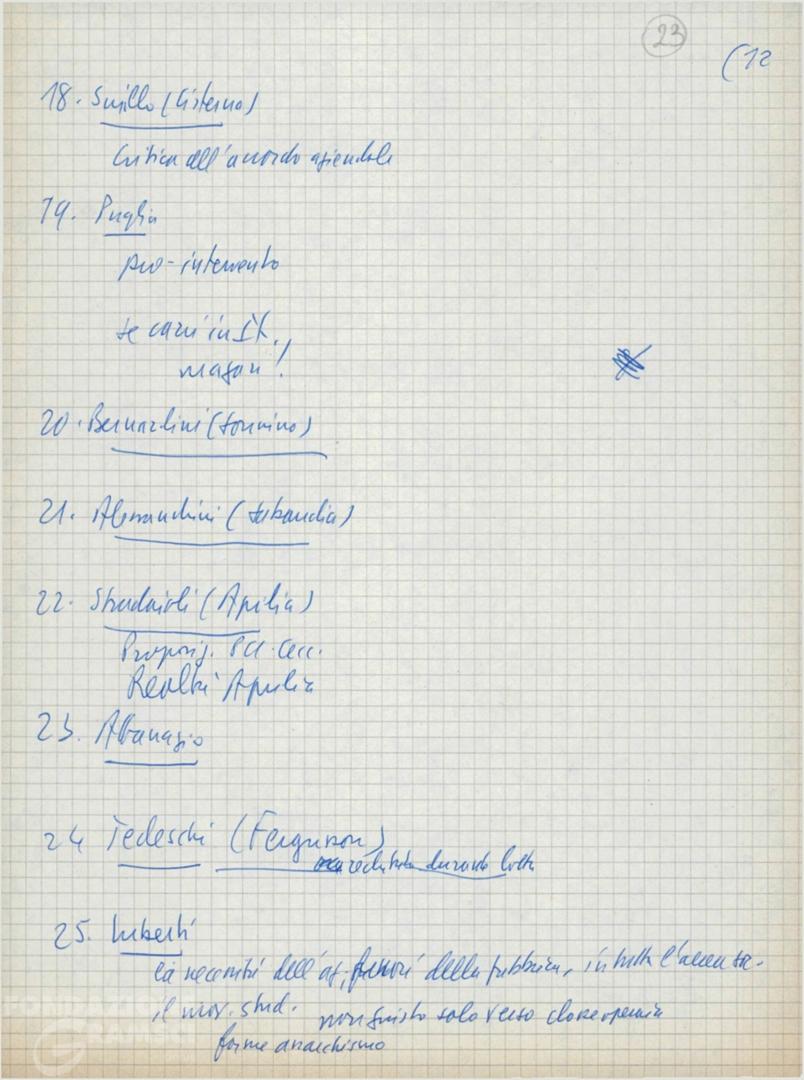 23
(12
18. Suillo (Cisterna)
Critica all'accordo aziendale
19. Puglia
pro-intervento
se casi in
magari!
20. Bernardini (Sonnino)
21. Alessandrini (Sabaudia)
22. (Aprilia)
Proposiz.
Realtà Aprilia
23. Attanasio
24 Tedeschi (Ferguson)
durante lotta
25. Luberti
la necessità dell'az. fuori della fabbrica, in tutta l'area
il mov. stud. non giusto solo verso classe operaia
forme anarchismo
FONDAZIONE
Gramsci